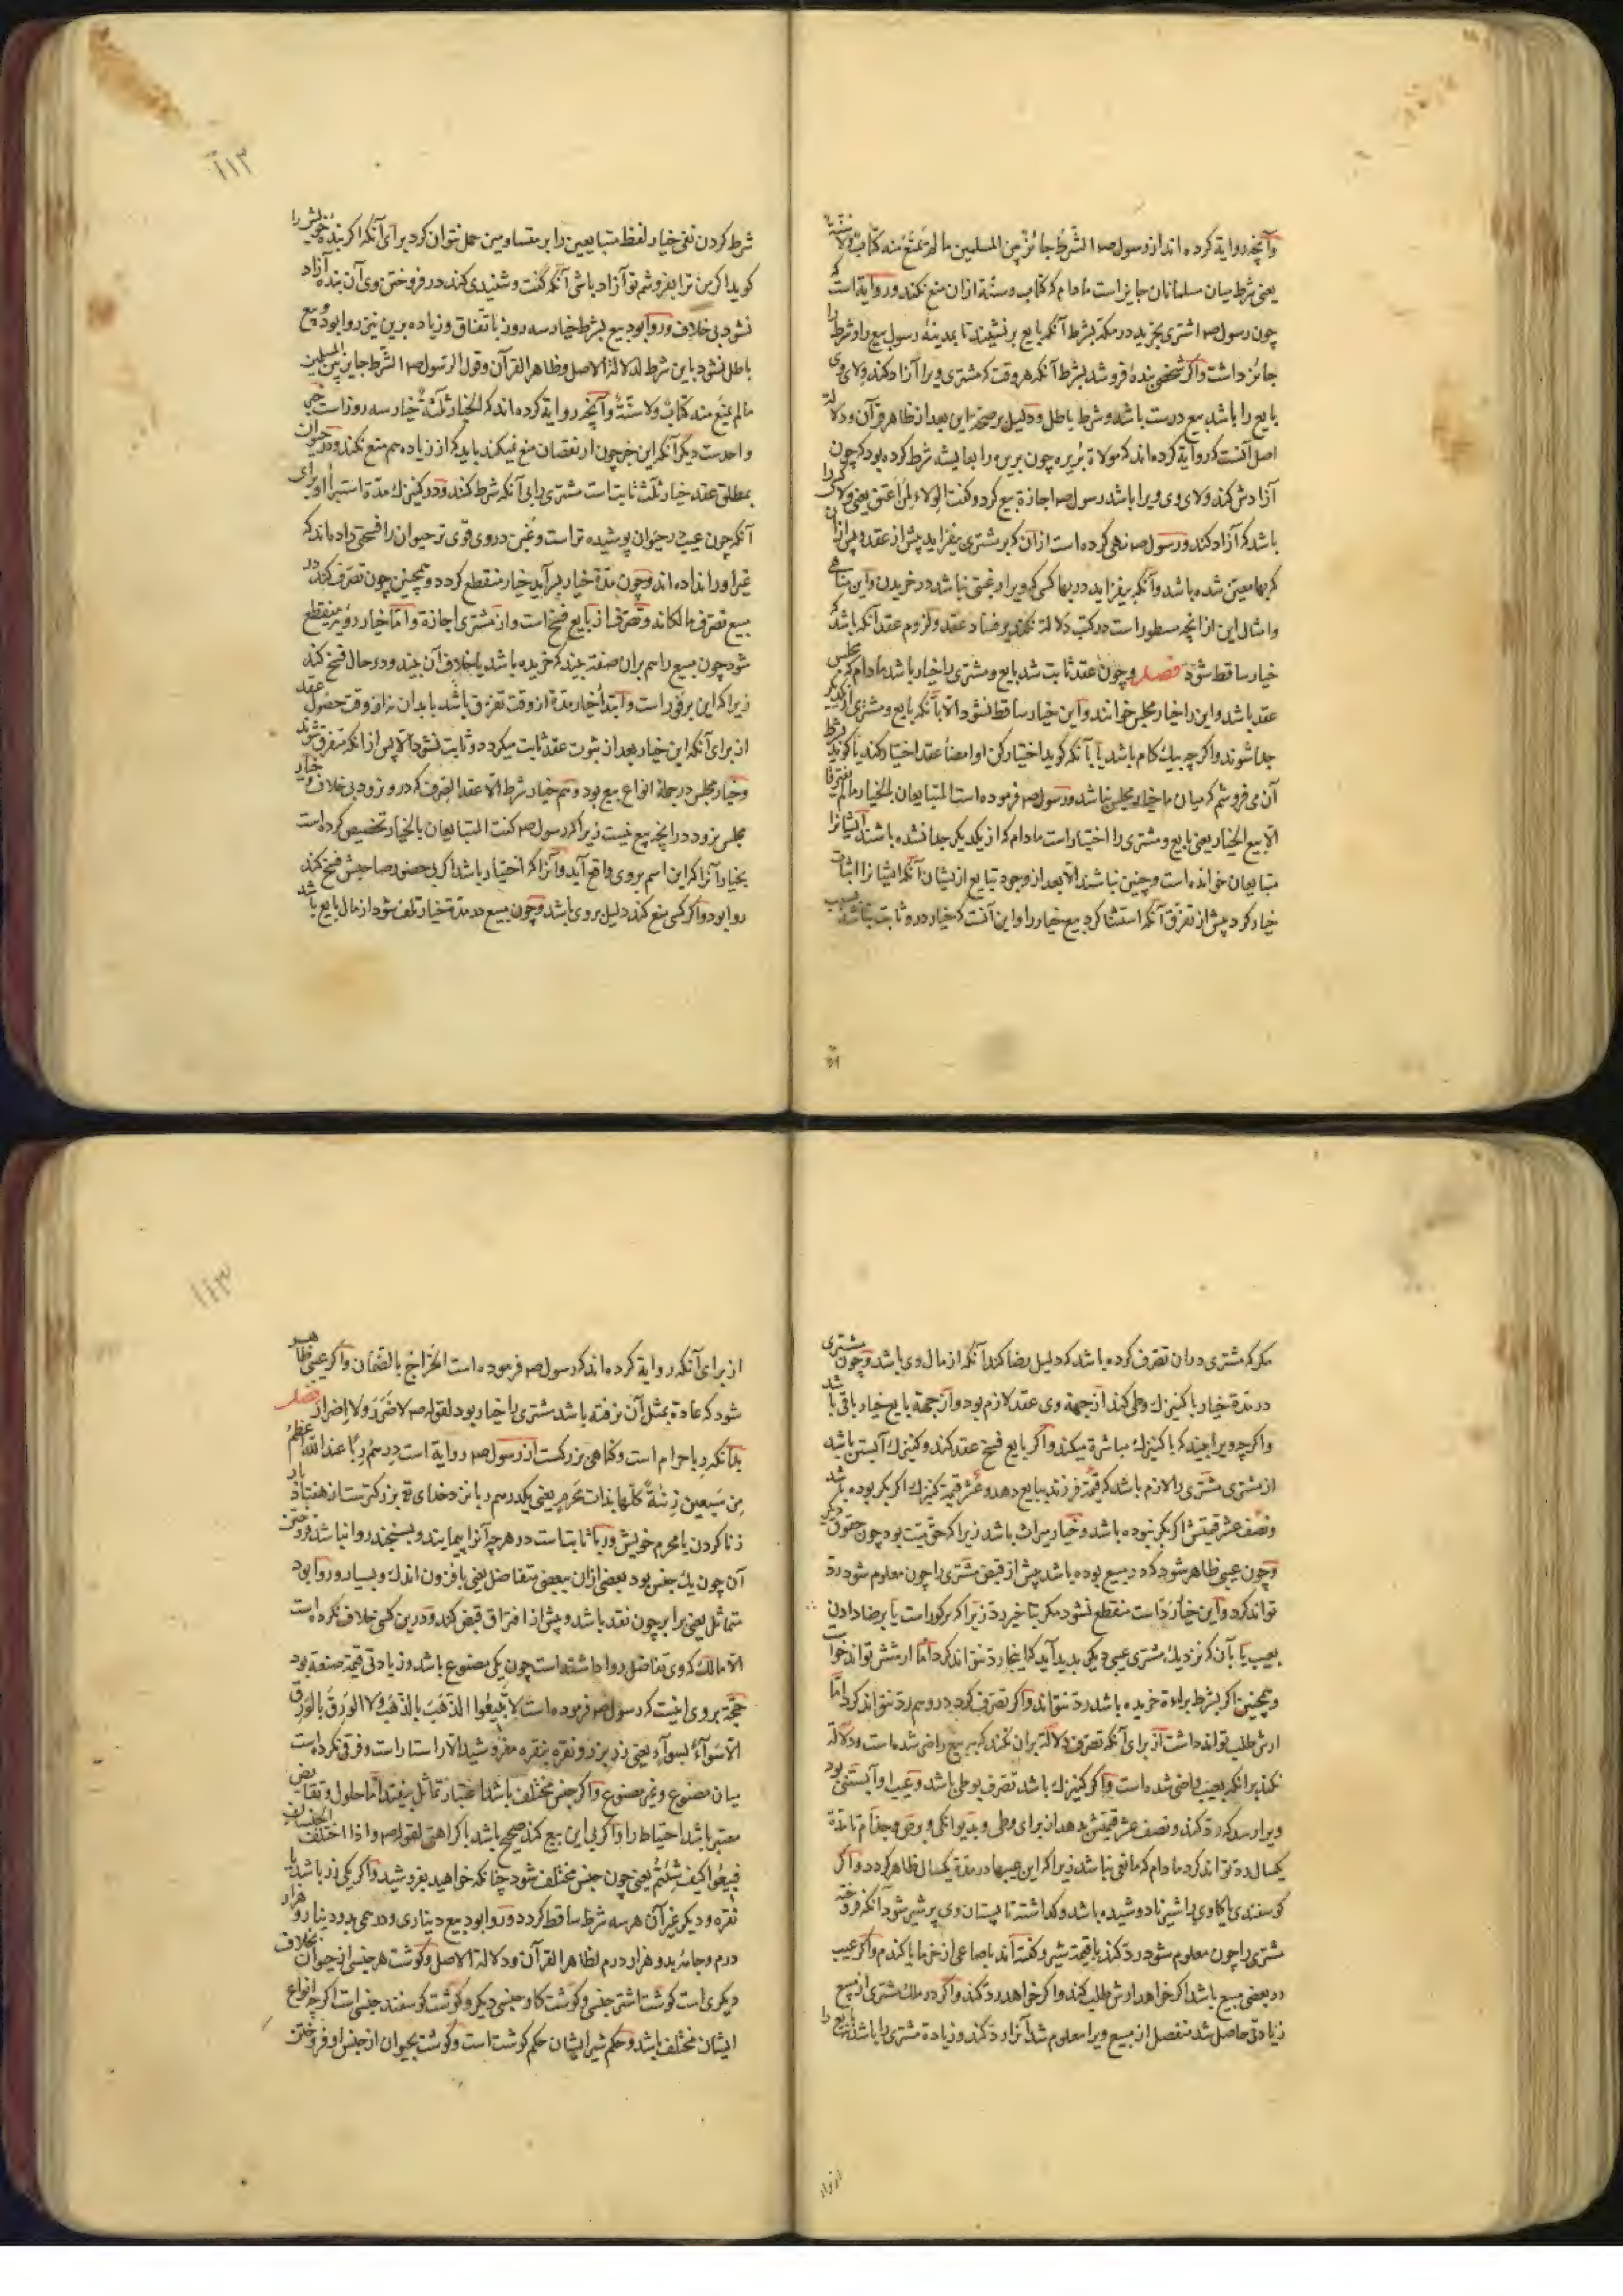 وآنچه روایة کرده اند از رسول صم الشَّرطُ جائزٌ بین المسلمین ما لم یَمنَع مِنه کتابٌ ولا سنّةٌ
یعنی شرط میان مسلمانان جایز است مادام که کتاب وسنّة ازان منع نکند وروایة است که
چون رسول صم اشتری بخرید در مکّه بشرط آنکه بایع برنشیند تا بمدینه رسول بیع را وشرط را
جائز داشت واکر شخصی بندۀ فروشد بشرط آنکه هر وقت که مشتری ویرا آزاد کند ولای وی
بایع را باشد بیع درست باشد وشرط باطل ودلیل بر صحّة این بعد از ظاهر قرآن ودلالة
اصل آنست که روایة کرده اند که مولاة بریره چون بریره را بعایشه شرط کرده بود که چون
آزادش کند ولای وی ویرا باشد رسول صم اجازة بیع کرد وکفت الولاء لِمَن اعتق یعنی ولا کسی را
باشد که آزاد کند ورسول صم نهی کرده است ازان که بر مشتری بیفزاید پیش از عقد وپس ازان
که بها معیّن شده باشد وآنکه بیفزاید در بها کسی که ویرا رغبتی نباشد در خریدن واین مناهی
وامثال این از انچه مسطور است در کتب دلالة نکند بر فساد عقد ولزوم عقد آنکه باشد که
خیار ساقط شود فصل وچون عقد ثابت شد بایع ومشتری را خیار باشد مادام که در مجلس
عقد باشد واین را خیار مجلس خوانند واین خیار ساقط نشود الّا بآنکه بایع ومشتری از یکدیگر
جدا شوند واکرچه بیك کام باشد یا بآنکه کوید اختیار کن او امضاء عقد اختیار کند یا کوید بشرط
آن می فروشم که میان ما خیار مجلس نباشد ورسول صم فرموده است المتبایعان بالخیار ما لم یفترقا
الّا بیع الخیار یعنی بایع ومشتری را اختیار است مادام که از یکدیکر جدا نشده باشند ایشانرا
متبایعان خوانده است وچنین نباشند الّا بعد از وجود تبایع ازیشان آنکه ایشانرا اثبات
خیار کرد پیش از تفرّق آنکه استثنا کرد بیع خیار را واین آنست که خیار درو ثابت نباشد
۱۱۳
شرط کردن نفی خیار لفظ متبایعین را بر متساومین حمل نتوان کرد برای آنکه اکر بندۀ خویش را
کوید اکر من ترا بفروشم تو آزاد باشی آنکه کفت وشنیدی کند در فروختن وی آن بنده آزاد
نشود بی خلاف وروا بود بیع بشرط خیار سه روز باتّفاق وزیاده برین نیز روا بود وبیع
باطل نشود باین شرط لدلالة الاصل وظاهر القرآن وقول الرسول صم الشّرط جایز بین المسلمین
ما لم یمنع منه کتابٌ ولا سنّةٌ وآنچه روایة کرده اند که الخیار ثلثةٌ خیار سه روز است خبر
واحدست دیکر آنکه این خبر چون از نقصان منع نمیکند باید که از زیاده هم منع نکند ودر حیوان
بمطلق عقد خیار ثلث ثابت است مشتری را بی آنکه شرط کنند ودر کنیزك مدّة استبرا او برای
آنکه چون عیب در حیوان پوشیده تر است وغبن در وی قوی تر حیوان را فسحتی داده اند که
غیر اورا نداده اند وچون مدّة خیار بسر آید خیار منقطع کردد وهمچنین چون تصرّف کند در
مبیع تصرّف مالکانه وتصرّف از بایع فسخ است واز مشتری اجازة وامّا خیار رویه منقطع
شود چون مبیع را هم بران صفة بیند که خریده باشد یا خلاف آن بیند ودر حال فسخ کند
زیرا که این بر فور است وابتداء خیار مدّة از وقت تفرّق باشد بابدان نه از وقت حصول عقد
از برای آنکه این خیار بعد از ثبوت عقد ثابت میکردد وثابت نشود الّا پس از انکه متفرق شوند
وخیار مجلس در جملۀ انواع بیع بود وهم خیار شرط الّا عقد الصّرف که درو نرود بی خلاف وخیار
مجلس نرود در انچه بیع نیست زیرا که رسول صم کفت المتبایعان بالخیار تخصیص کرده است
بخیار آنرا که این اسم بروی واقع آید وآنرا که اختیار باشد اکر بی حضور صاحبش فسخ کند
روا بود واکر کسی منع کند دلیل بروی باشد وچون مبیع در مدّة خیار تلف شود از مال بایع باشد
مکر که مشتری دران تصرّف کرده باشد که دلیل رضا کند آنکه از مال وی باشد وچون مشتری
در مدّة خیار با کنیزك وطی کند از جهة وی عقد لازم بود واز جهة بایع خیار باقی باشد
واکرچه ویرا بیند که با کنیزك مباشرة میکند واکر بایع فسخ عقد کند وکنیزك آبستن باشد
از مشتری مشتری را لازم باشد که قیمة فرزند ببایع دهد وعُشر قیمة کنیزك اکر بکر بوده باشد
ونصف عشر قیمتش اکر بکر نبوده باشد وخیار میراث باشد زیرا که حقّ میّت بود چون حقوق دیکر
وچون عیبی ظاهر شود که در مبیع بوده باشد پیش از قبض مشتری را چون معلوم شود ردّ
تواند کرد واین خیار ردّ است منقطع نشود مکر بتاخیر ردّ زیرا که بر فور است یا برضا دادن
بعیب یا بآن که نزدیك مشتری عیبی دیکر پدید آید که اینجا ردّ نتواند کرد امّا ارشش تواند خواست
وهمچنین اکر بشرط براءة خریده باشد ردّ نتواند واکر تصرّف کرد درو هم ردّ نتواند کرد امّا
ارش طلب تواند داشت از برای آنکه تصرّف دلالة بران نکند که ببیع راضی شده است ودلالة
نکند برانکه بعیب راضی شده است واکر کنیزك باشد تصرّف بوطی باشد وعیب او آبستنی بود
ویرا رسد که ردّ کند ونصف عشر قیمتش بدهد از برای وطی وبدیوانکی وبرص وجذام تا مدّة
یکسال ردّ تواند کرد مادام که مانعی نباشد زیرا که این عیبها در مدّة یکسال ظاهر کردد واکر
کوسفندی یا کاوی را شیر نادوشیده باشد وکذاشته تا پستان وی پر شیر شود آنکه فروخته
مشتری را چون معلوم شود ردّ کند با قیمة شیر وکفته اند با صاعی از خرما یا کندم واکر عیب
در بعضی مبیع باشد اکر خواهد ارش طلب کند واکر خواهد ردّ کند واکر در ملك مشتری از مبیع
زیادتی حاصل شد منفصل از مبیع ویرا معلوم شد آنرا ردّ کند وزیادة مشتری را باشد
۱۱۳
از برای آنکه روایة کرده اند که رسول صم فرموده است الخراج بالضّمان واکر عیبی ظاهر
شود که عادة بمثل آن نرفته باشد مشتری را خیار بود لقوله صم لا ضَرَرَ ولا اِضرارَ فصل
بدانکه رِبا حرام است وکناهی بزرکست از رسول صم روایة است درهمُ رِبًا عند اللّه اعظمُ
مِن سَبعین زِنیةً کلّها بذات مَحرمٍ یعنی یکدرهم ربا نزد خدای تع بزرکترست از هفتاد بار
زنا کردن با محرم خویش وربا ثابتست در هرچه آنرا پیمایند وبسنجند روا نباشد فروختن
آن چون یك جنس بود بعضی ازان ببعضی متفاضل یعنی بافزون اندك وبسیار وروا بود
متماثل یعنی برابر چون نقد باشد وپیش از افتراق قبض کند ودرین کسی خلاف نکرده است
الّا مالك که وی تفاضل روا داشته است چون یکی مصنوع باشد وزیادتی قیمة صنعة بود
حجّة بروی اینست که رسول صم فرموده است لا تَبیعُوا الذّهبَ بالذّهبِ ولا الوَرِقَ بالوَرِق
الّا سَواءً بسواءٍ یعنی زر بزر ونقره بنقره مفروشید الّا راستا راست وفرق نکرده است
میان مصنوع وغیر مصنوع واکر جنس مختلف باشد اعتبار تماثل بیفتد امّا حلول وتقابض
معتبر باشد احتیاط را واکر بی این بیع کند صحیح باشد با کراهتی لقوله صم واذا اختلف الجنسان
فبیعُوا کیف شِئتُم یعنی چون جنس مختلف شود چنانکه خواهید بفروشید واکر یکی زر باشد یا
نقره ودیکر غیر آن هر سه شرط ساقط کردد وروا بود بیع دیناری ودرهمی بدو دینار وهزار
درم وجامۀ بدو هزار درم لظاهر القرآن ودلالة الاصل وکوشت هر جنسی از حیوان بخلاف
دیکری است کوشت اشتر جنسی وکوشت کاو جنسی دیکر وکوشت کوسفند جنسی است اکرچه انواع
ایشان مختلف باشد وحکم شیر ایشان حکم کوشت است وکوشت بحیوان از جنس او فروختن